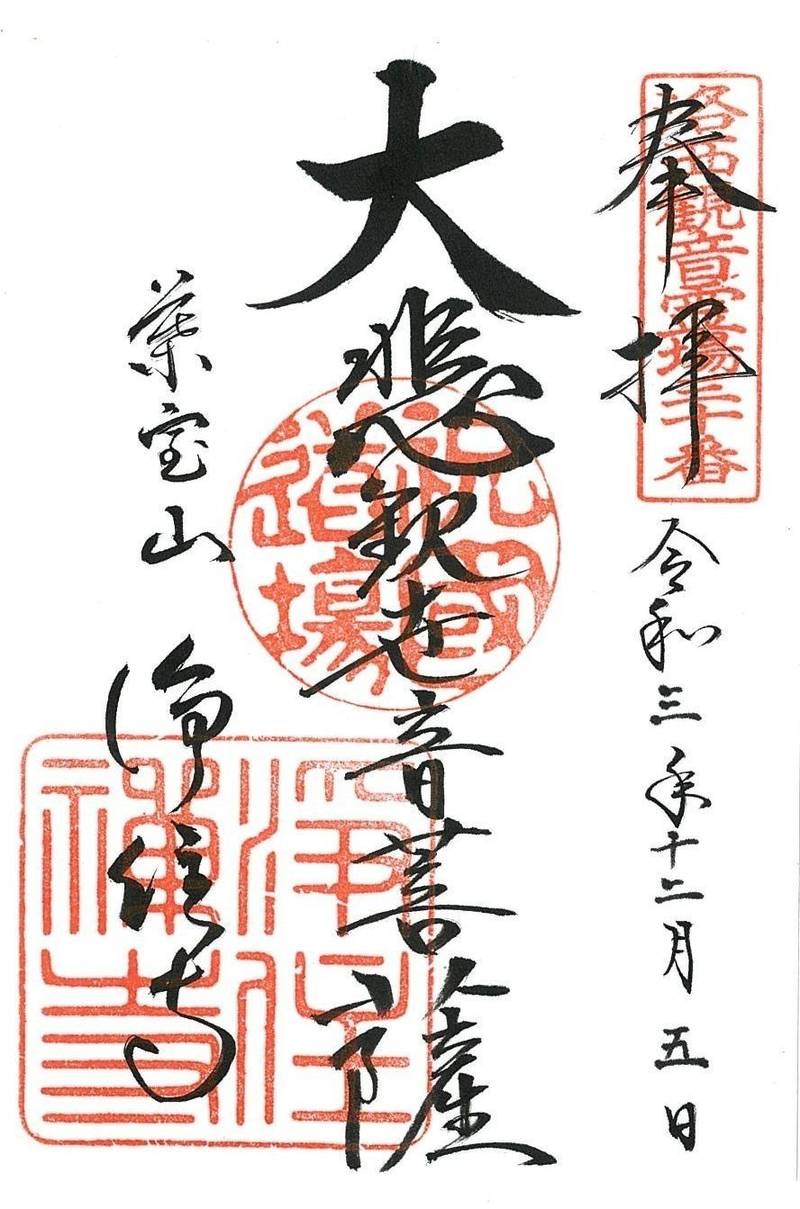 洛西観音霊場三十番
奉拝
令和三年十二月五日
大悲観世音菩薩
祝國道場
葉室山
浄住寺
淨住禪寺